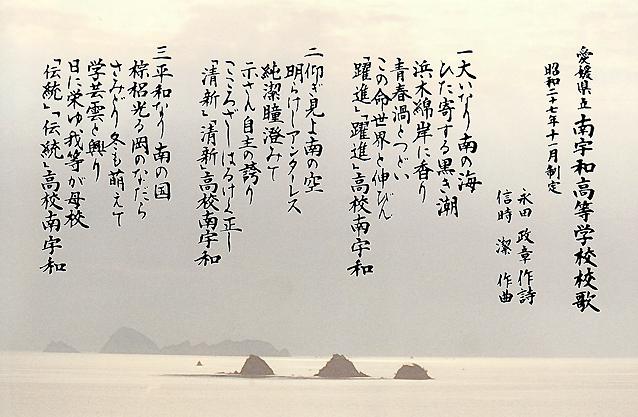 愛媛県立 南宇和高等学校校歌
昭和二十七年十一月制定
永田 政章 作詩
信時 潔 作曲
一 大いなり 南の海
ひた寄する黒き潮
浜木綿岸に香り
青春渦とつどい
この命世界と伸びん
「躍進」「躍進」高校南宇和
二 仰ぎ見よ南の空
明らけしアンタレス
純潔瞳澄みて
示さん自主の誇り
こころざしはるけく正し
「清新」「清新」高校南宇和
三 平和なり 南の国
棕梠光る岡のなだら
さみどり冬も萌えて
学芸雲と興り
日に栄ゆ我等が母校
「伝統」「伝統」高校南宇和